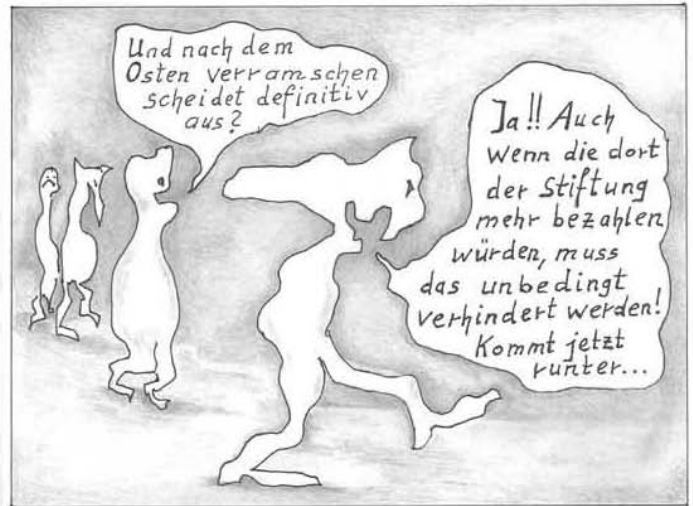 Und nach dem
Osten verramschen
scheidet definitiv
aus?
Ja!! Auch
wenn die dort
der Stiftung
mehr bezahlen
würden, muss
das unbedingt
verhindert werden!
Kommt jetzt
runter...